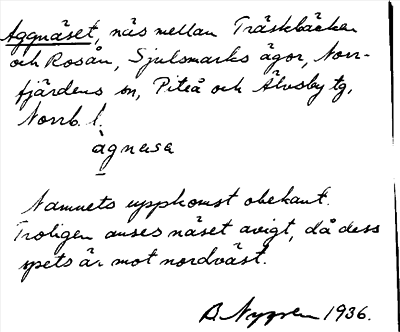 Aggnäset, näs mellan Träskbäcken
och Rosån, Sjulsmarks ägor, Norr-
fjärdens sn, Piteå och Älvsby tg,
Norrb. l.
àgnasa
Namnets uppkomst obekant.
Troligen anses näset avigt, då dess
spets är mot nordväst.
B. Nygren 1936.